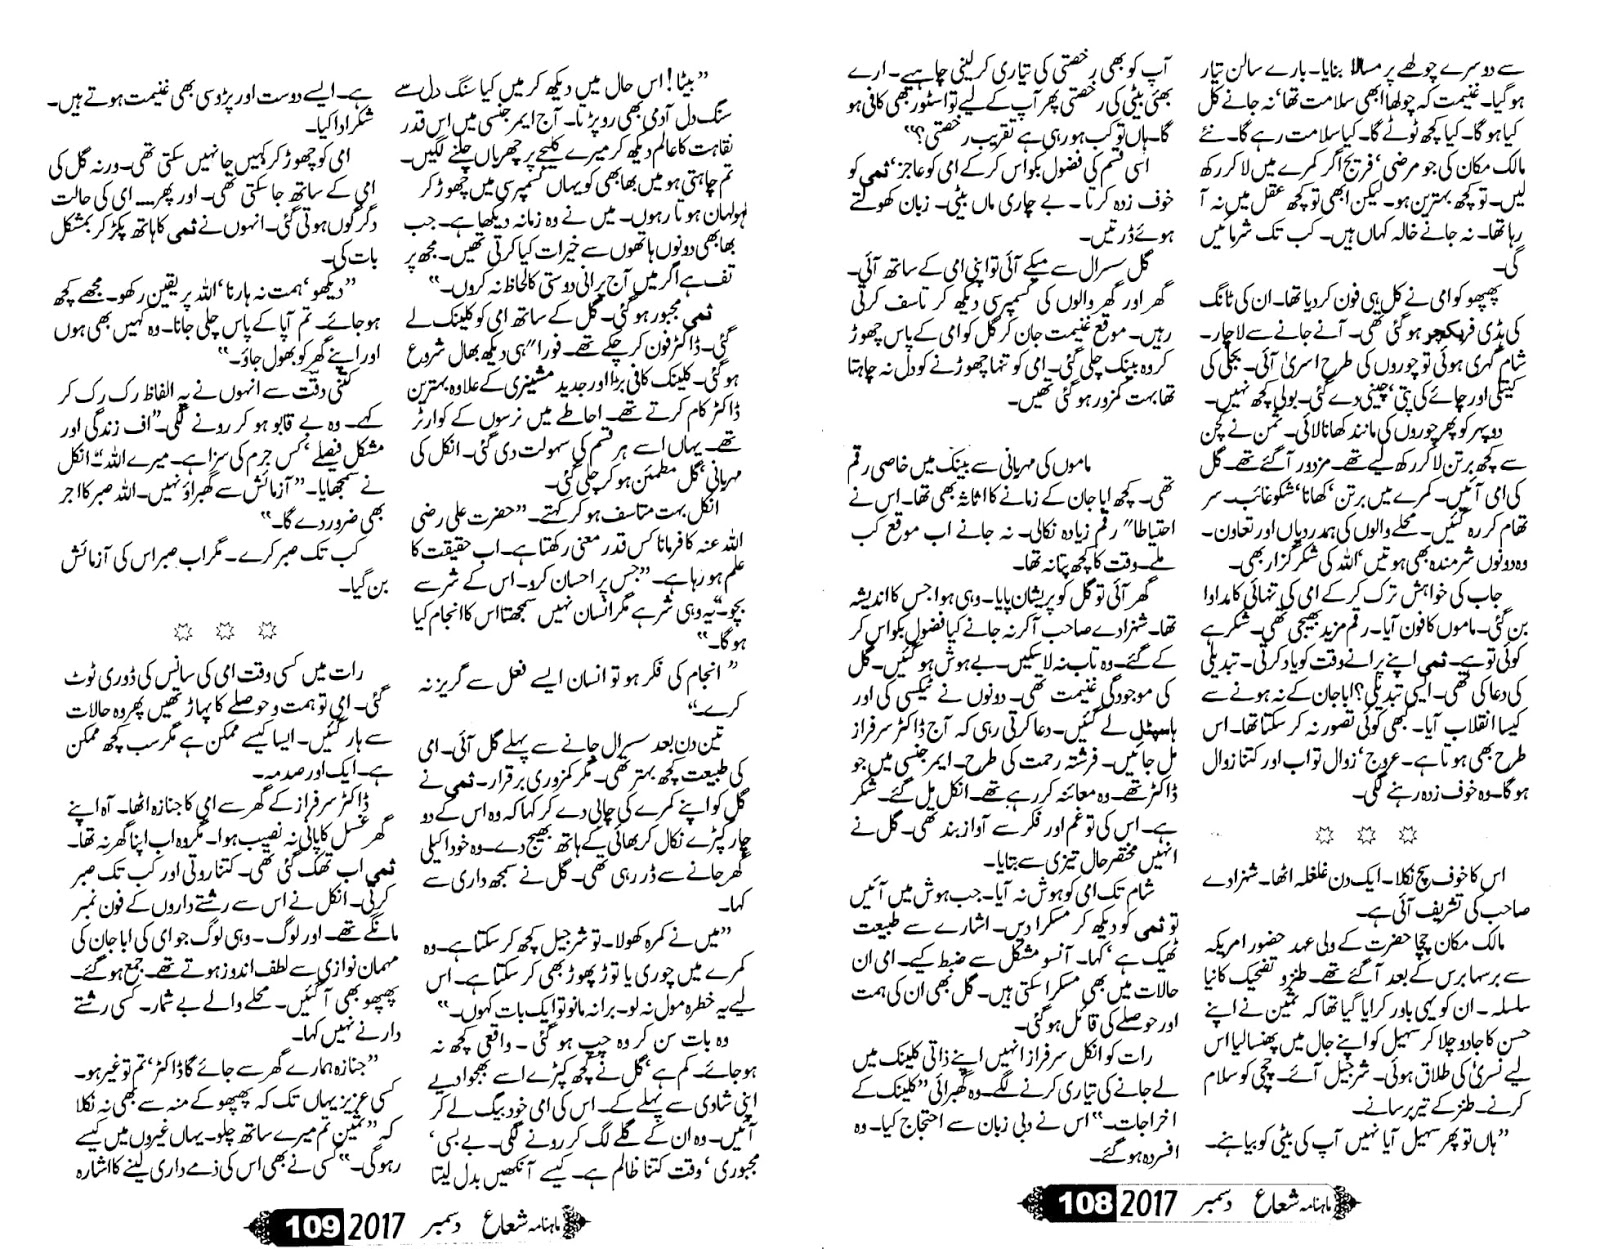 سے دوسرے چولھے پر مسالا بنایا۔ بارے سالن تیار
ہوگیا۔ غنیمت کہ چولھا ابھی سلامت تھا' نہ جانے کل
کیا ہوگا۔ کیا کچھ ٹوٹے گا۔ کیا سلامت رہے گا۔ نئے
مالک مکان کی جو مرضی' فریج اگر کمرے میں لا کر رکھ
لیں۔ تو کچھ بہترین ہو۔ لیکن ابھی تو کچھ عقل میں نہ آ
رہا تھا۔ نہ جانے خالہ کہاں ہیں۔ کب تک شرمائیں
گی۔
پھپھو کو امی نے کل ہی فون کر دیا تھا۔ ان کی ٹانگ
کی ہڈی فریکچر ہوگئی تھی۔ آنے جانے سے لاچار۔
شام گہری ہوئی تو چوروں کی طرح اسریٰ آئی۔ بجلی کی
کیتلی اور چائے کی پتی' چینی دے گئی۔ بولی کچھ نہیں۔
دوپہر کو پھر چوروں کی مانند کھانا لائی۔ ثمن نے کچن
سے کچھ برتن لا کر رکھ لیے تھے۔ مزدور آگئے تھے۔ گل
کی امی آئیں۔ کمرے میں برتن' کھانا' شکو غائب۔ سر
تھام کر رہ گئیں۔ محلے والوں کی ہمدردیاں اور تعاون۔
وہ دونوں شرمندہ بھی ہوتیں' اللہ کی شکر گزار بھی۔
جاب کی خواہش ترک کر کے امی کی تنہائی کا مداوا
بن گئی۔ ماموں کا فون آیا۔ رقم مزید بھیجی تھی۔ شکر ہے
کوئی تو ہے۔ ثمی اپنے پرانے وقت کو یاد کرتی۔ تبدیلی
کی دعا کی تھی۔ ایسی تبدیلی؟ ابا جان کے نہ ہونے سے
کیسا انقلاب آیا۔ کبھی کوئی تصور نہ کر سکتا تھا۔ اس
طرح بھی ہوتا ہے۔ عروج' زوال تو اب اور کتنا زوال
ہوگا۔ وہ خوف زدہ رہنے لگی۔
اس کا خوف سچ نکلا۔ ایک دن غلغلہ اٹھا۔ شہزادے
صاحب کی تشریف آئی ہے۔
مالک مکان چچا حضرت کے ولی عہد حضور امریکہ
سے برسہا برس کے بعد آگئے تھے۔ طنز و تضحیک کا نیا
سلسلہ۔ ان کو یہی باور کرایا گیا تھا کہ ثمین نے اپنے
حسن کا جادو چلا کر سہیل کو اپنے جال میں پھنسا لیا اس
لیے نسریٰ کی طلاق ہوئی۔ شرجیل آئے۔ چچی کو سلام
کرنے۔ طنز کے تیر برسانے۔
"ہاں تو پھر سہیل آیا نہیں آپ کی بیٹی کو بیاہنے۔
آپ کو بھی رخصتی کی تیاری کر لینی چاہیے۔ ارے
بھئی بیٹی کی رخصتی پھر آپ کے لیے تو اسٹور بھی کافی ہو
گا۔ ہاں تو کب ہو رہی ہے تقریب رخصتی؟"
اسی قسم کی فضول بکواس کر کے امی کو عاجز' ثمی کو
خوف زدہ کرتا۔ بے چاری ماں بیٹی۔ زبان کھولتے
ہوئے ڈرتیں۔
گل سسرال سے میکے آئی تو اپنی امی کے ساتھ آئی۔
گھر اور گھر والوں کی کسمپرسی دیکھ کر تاسف کرتی
رہیں۔ موقع غنیمت جان کر گل کو امی کے پاس چھوڑ
کر وہ بینک چلی گئی۔ امی کو تنہا چھوڑنے کو دل نہ چاہتا
تھا بہت کمزور ہوگئی تھیں۔
ماموں کی مہربانی سے بینک میں خاصی رقم
تھی۔ کچھ ابا جان کے زمانے کا اثاثہ بھی تھا۔ اس نے
احتیاطا" رقم زیادہ نکالی۔ نہ جانے اب موقع کب
ملے۔ وقت کا کچھ پتا نہ تھا۔
گھر آئی تو گل کو پریشان پایا۔ وہی ہوا جس کا اندیشہ
تھا۔ شہزادے صاحب آ کر نہ جانے کیا فضول بکواس کر
کے گئے۔ وہ تاب نہ لا سکیں۔ بے ہوش ہو گئیں۔ گل
کی موجودگی غنیمت تھی۔ دونوں نے ٹیکسی کی اور
ہاسپٹل لے گئیں۔ دعا کرتی رہی کہ آج ڈاکٹر سرفراز
مل جائیں۔ فرشتہ رحمت کی طرح۔ ایمرجنسی میں جو
ڈاکٹر تھے۔ وہ معائنہ کر رہے تھے۔ انکل مل گئے۔ شکر
ہے۔ اس کی تو غم اور فکر سے آواز بند تھی۔ گل نے
انہیں مختصر حال تیزی سے بتایا۔
شام تک امی کو ہوش نہ آیا۔ جب ہوش میں آئیں
تو ثمی کو دیکھ کر مسکرا دیں۔ اشارے سے طبیعت
ٹھیک ہے' کہا۔ آنسو مشکل سے ضبط کیے۔ امی ان
حالات میں بھی مسکرا سکتی ہیں۔ گل بھی ان کی ہمت
اور حوصلے کی قائل ہوگئی۔
رات کو انکل سرفراز انہیں اپنے ذاتی کلینک میں
لے جانے کی تیاری کرنے لگے۔ وہ گھبرائی "کلینک کے
اخراجات۔" اس نے دبی زبان سے احتجاج کیا۔ وہ
افسردہ ہوگئے۔
ماہنامہ شعاع دسمبر 2017 108
"بیٹا! اس حال میں دیکھ کر میں کیا سنگ دل سے
سنگ دل آدمی بھی رو پڑتا۔ آج ایمرجنسی میں اس قدر
نقاہت کا عالم دیکھ کر میرے کلیجے پر چھریاں چلنے لگیں۔
تم چاہتی ہو میں بھابھی کو یہاں کسمپرسی میں چھوڑ کر
لہولہان ہوتا رہوں۔ میں نے وہ زمانہ دیکھا ہے۔ جب
بھابھی دونوں ہاتھوں سے خیرات کیا کرتی تھیں۔ مجھ پر
تف ہے اگر میں آج پرانی دوستی کا لحاظ نہ کروں۔"
ثمی مجبور ہوگئی۔ گل کے ساتھ امی کو کلینک لے
گئی۔ ڈاکٹر فون کر چکے تھے۔ فورا" ہی دیکھ بھال شروع
ہوگئی۔ کلینک کافی بڑا اور جدید مشینری کے علاوہ بہترین
ڈاکٹر کام کرتے تھے۔ احاطے میں نرسوں کے کوارٹر
تھے۔ یہاں اسے ہر قسم کی سہولت دی گئی۔ انکل کی
مہربانی' گل مطمئن ہو کر چلی گئی۔
انکل بہت متاسف ہو کر کہتے۔ "حضرت علی رضی
اللہ عنہ کا فرمانا کس قدر معنی رکھتا ہے۔ اب حقیقت کا
علم ہو رہا ہے۔ "جس پر احسان کرو۔ اس کے شر سے
بچو۔" یہ وہی شر ہے مگر انسان نہیں سمجھتا اس کا انجام کیا
ہوگا۔"
"انجام کی فکر ہو تو انسان ایسے فعل سے گریز نہ
کرے۔"
تین دن بعد سسرال جانے سے پہلے گل آئی۔ امی
کی طبیعت کچھ بہتر تھی۔ مگر کمزوری برقرار۔ ثمی نے
گل کو اپنے کمرے کی چابی دے کر کہا کہ وہ اس کے دو
چار کپڑے نکال کر بھائی کے ہاتھ بھیج دے۔ وہ خود اکیلی
گھر جانے سے ڈر رہی تھی۔ گل نے سمجھ داری سے
کہا۔
"میں نے کمرہ کھولا۔ تو شرجیل کچھ کر سکتا ہے۔ وہ
کمرے میں چوری یا توڑ پھوڑ بھی کر سکتا ہے۔ اس
لیے یہ خطرہ مول نہ لو۔ برا نہ مانو تو ایک بات کہوں۔"
وہ بات سن کر وہ چپ ہوگئی۔ واقعی کچھ نہ
ہو جائے۔ کم ہے' گل نے کچھ کپڑے اسے بھجوا دیے
اپنی شادی سے پہلے کے۔ اس کی امی خود بیگ لے کر
آئیں۔ وہ ان کے گلے لگ کر رونے لگی۔ بے بسی'
مجبوری' وقت کتنا ظالم ہے۔ کیسے آنکھیں بدل لیتا
ہے۔ ایسے دوست اور پڑوسی بھی غنیمت ہوتے ہیں۔
شکر ادا کیا۔
امی کو چھوڑ کر کہیں جا نہیں سکتی تھی۔ ورنہ گل کی
امی کے ساتھ جا سکتی تھی۔ اور پھر۔۔۔ امی کی حالت
دگرگوں ہوتی گئی۔ انہوں نے ثمی کا ہاتھ پکڑ کر بمشکل
بات کی۔
"دیکھو' ہمت نہ ہارنا' اللہ پر یقین رکھو۔ مجھے کچھ
ہو جائے۔ تم آپا کے پاس چلی جانا۔ وہ کہیں بھی ہوں
اور اپنے گھر کو بھول جاؤ۔"
کتنی دقت سے انہوں نے یہ الفاظ رک رک کر
کہے۔ وہ بے قابو ہو کر رونے لگی۔ "اف زندگی اور
مشکل فیصلے' کس جرم کی سزا ہے۔ میرے اللہ۔" انکل
نے سمجھایا۔ "آزمائش سے گھبراؤ نہیں۔ اللہ صبر کا اجر
بھی ضرور دے گا۔"
کب تک صبر کرے۔ مگر اب صبر اس کی آزمائش
بن گیا۔
رات میں کسی وقت امی کی سانس کی ڈوری ٹوٹ
گئی۔ امی تو ہمت و حوصلے کا پہاڑ تھیں پھر وہ حالات
سے ہار گئیں۔ ایسا کیسے ممکن ہے مگر سب کچھ ممکن
ہے۔ ایک اور صدمہ۔
ڈاکٹر سرفراز کے گھر سے امی کا جنازہ اٹھا۔ آہ اپنے
گھر غسل کا پانی نہ نصیب ہوا۔ مگر وہ اب اپنا گھر نہ تھا۔
ثمی اب تھک گئی تھی۔ کتنا روتی اور کب تک صبر
کرتی۔ انکل نے اس سے رشتے داروں کے فون نمبر
مانگے تھے۔ اور لوگ۔ وہی لوگ جو امی کی ابا جان کی
مہمان نوازی سے لطف اندوز ہوتے تھے۔ جمع ہوگئے۔
پھپھو بھی آگئیں۔ محلے والے بے شمار۔ کسی رشتے
دار نے نہیں کہا۔
"جنازہ ہمارے گھر سے جائے گا ڈاکٹر' تم تو غیر ہو۔
کسی عزیز یہاں تک کہ پھپھو کے منہ سے بھی نہ نکلا
کہ "ثمین تم میرے ساتھ چلو۔ یہاں غیروں میں کیسے
رہوگی۔" کسی نے بھی اس کی ذمے داری لینے کا اشارہ
ماہنامہ شعاع دسمبر 2017 109